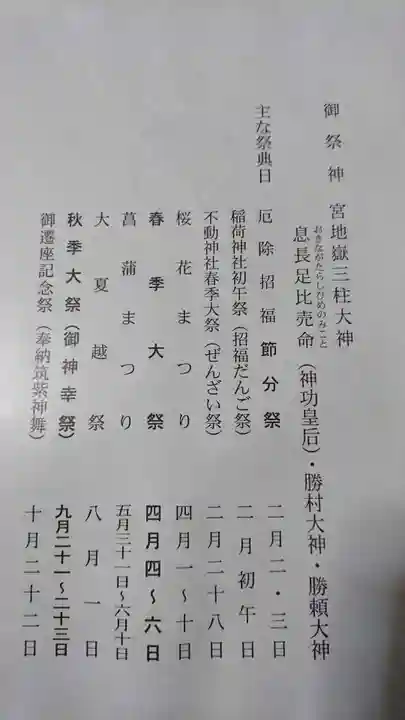 御祭神 宮地嶽三柱大神
おきながたらしひめのみこと
息長足比売命(神功皇后)・勝村大神・勝頼大神
主な祭典日 厄除招福節分祭 二月二・三日
稲荷神社初午祭(招福だんご祭) 二月初午日
不動神社春季大祭(ぜんざい祭) 二月二十八日
桜花まつり 四月一~十日
春季大祭 四月四~六日
菖蒲まつり 五月三十一日~六月十日
大夏越祭 八月一日
秋季大祭(御神幸祭) 九月二十一~二十三日
御遷座記念祭(奉納筑紫神舞) 十月二十二日